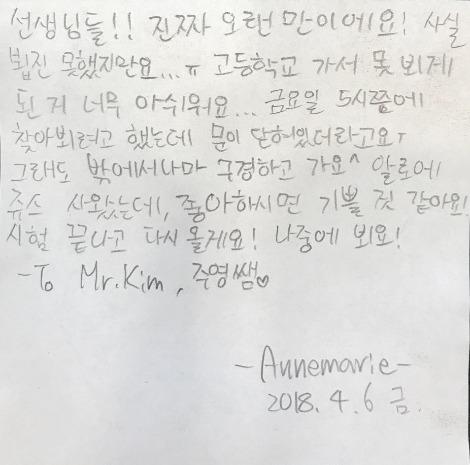 선생님들!! 진짜 오랜 만이에요! 사실
뵙진 못했지만요...ㅠ 고등학교 가서 못 뵈게
된 거 너무 아쉬워요... 금요일 5시쯤에
찾아뵈려고 했는데 문이 닫혀있더라고요ㅜ
그래도 밖에서나마 구경하고 가요^ 알로에
쥬스 사왔는데, 좋아하시면 기쁠 것 같아요!
시험 끝나고 다시 올게요! 나중에 뵈요!
-To Mr.Kim, 주영쌤♡
-Annemarie-
2018. 4. 6 금.